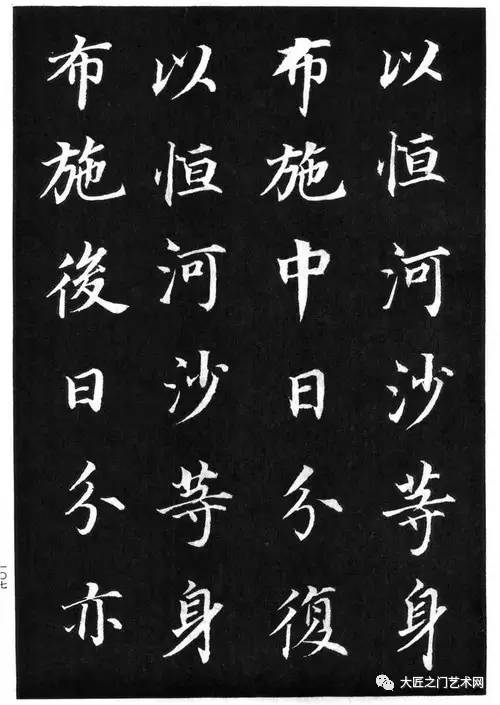 以恒河沙等身
布施中日分復
以恒河沙等身
布施後日分亦
一〇七
大匠之门艺术网